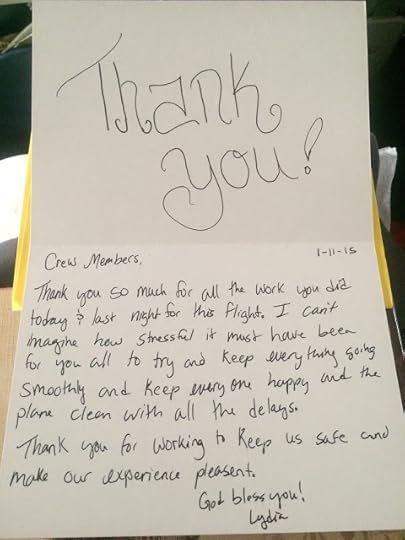 Thank
you!
Crew Members,
1-11-15
Thank you so much for all the work you did
today & last night for this flight. I can't
imagine how stressful it must have been
for you all to try and keep everything going
smoothly and keep everyone happy and the
plane clean with all the delays.
Thank you for working to keep us safe and
make our experience pleasent.
God bless you!
Lydia